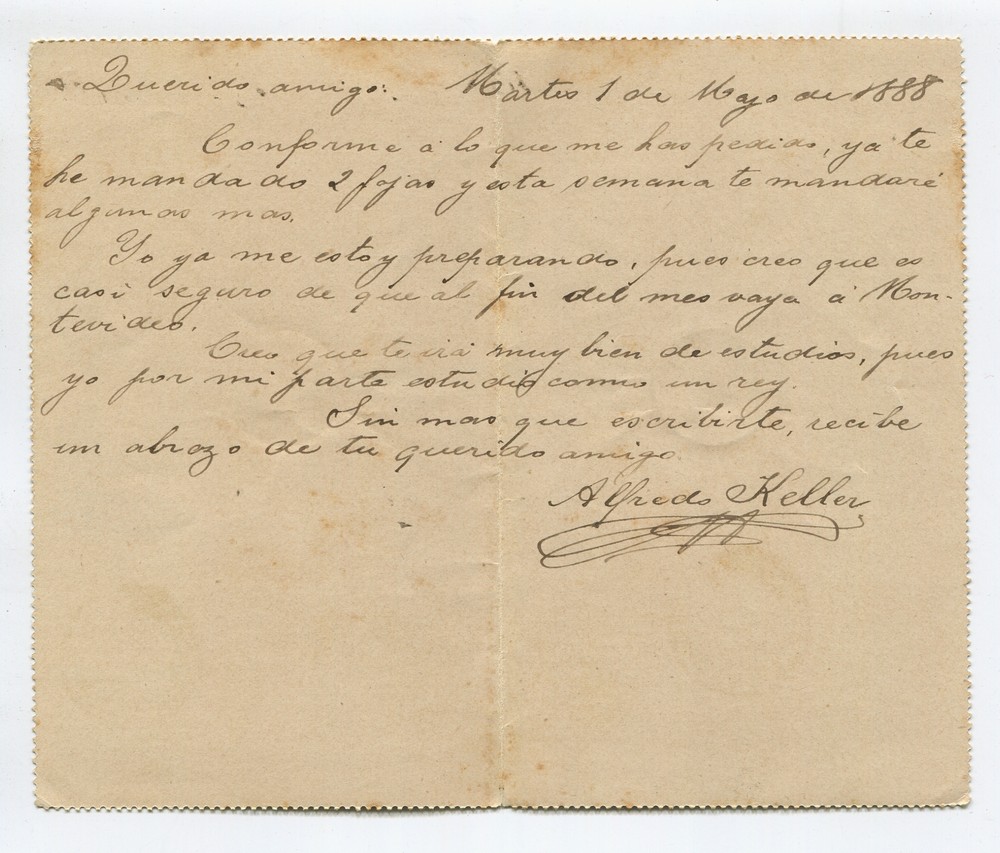 Querido amigo: Martes 1 de Mayo de 1888
Conforme á lo que me has pedido, ya te
he mandado 2 fojas y esta semana te mandaré
algunas mas.
Yo ya me estoy preparando, pues creo que es
casi seguro de que al fin del mes vaya á Mon-
tevideo.
Creo que te irá muy bien de estudios, pues
yo por mi parte estudio como un rey.
Sin mas que escribirte, recibe
un abrazo de tu querido amigo
Alfredo Keller